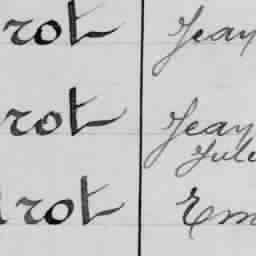 rot Jean
rot Jean
Jule
rot Em